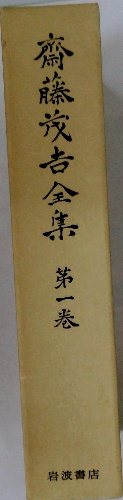 齋藤茂吉全集
第一卷
岩波書店